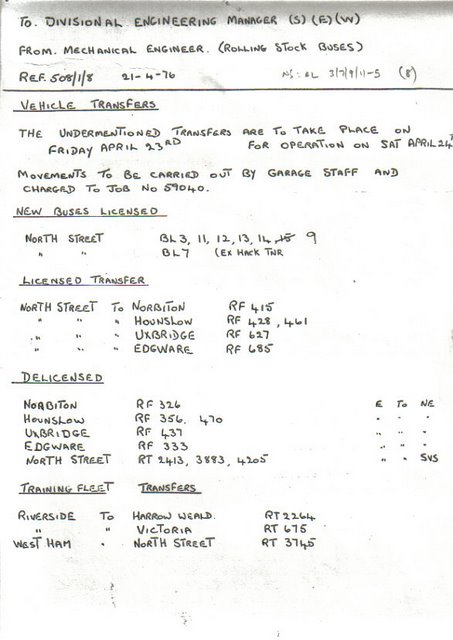 TO. DIVISIONAL ENGINEERING MANAGER (S) (E) (W)
FROM. MECHANICAL ENGINEER. (ROLLING STOCK BUSES)
REF. 508/1/8 21-4-76 3/7/9/11-5 (8)
VEHICLE TRANSFERS
THE UNDERMENTIONED TRANSFERS ARE TO TAKE PLACE ON
FRIDAY APRIL 23RD FOR OPERATION ON SAT APRIL 24T
MOVEMENTS TO BE CARRIED OUT BY GARAGE STAFF AND
CHARGED TO JOB NO 59040.
NEW BUSES LICENSED
NORTH STREET BL3, 11, 12, 13, 14, 15 9
" " BL7 (EX HACK TNR
LICENSED TRANSFER
NORTH STREET TO NORBITON RF 415
" " " HOUNSLOW RF 428, 461
" " " UXBRIDGE RF 627
" " " EDGWARE RF 685
DELICENSED
NORBITON RF 326 E TO NE
HOUNSLOW RF 356. 470 " " "
UXBRIDGE RF 437 " " "
EDGWARE RF 333 " " "
NORTH STREET RT 2413, 3883, 4205 " " SVS
TRAINING FLEET TRANSFERS
RIVERSIDE TO HARROW WEALD. RT2264
" " VICTORIA RT 675
WEST HAM " NORTH STREET RT 3745